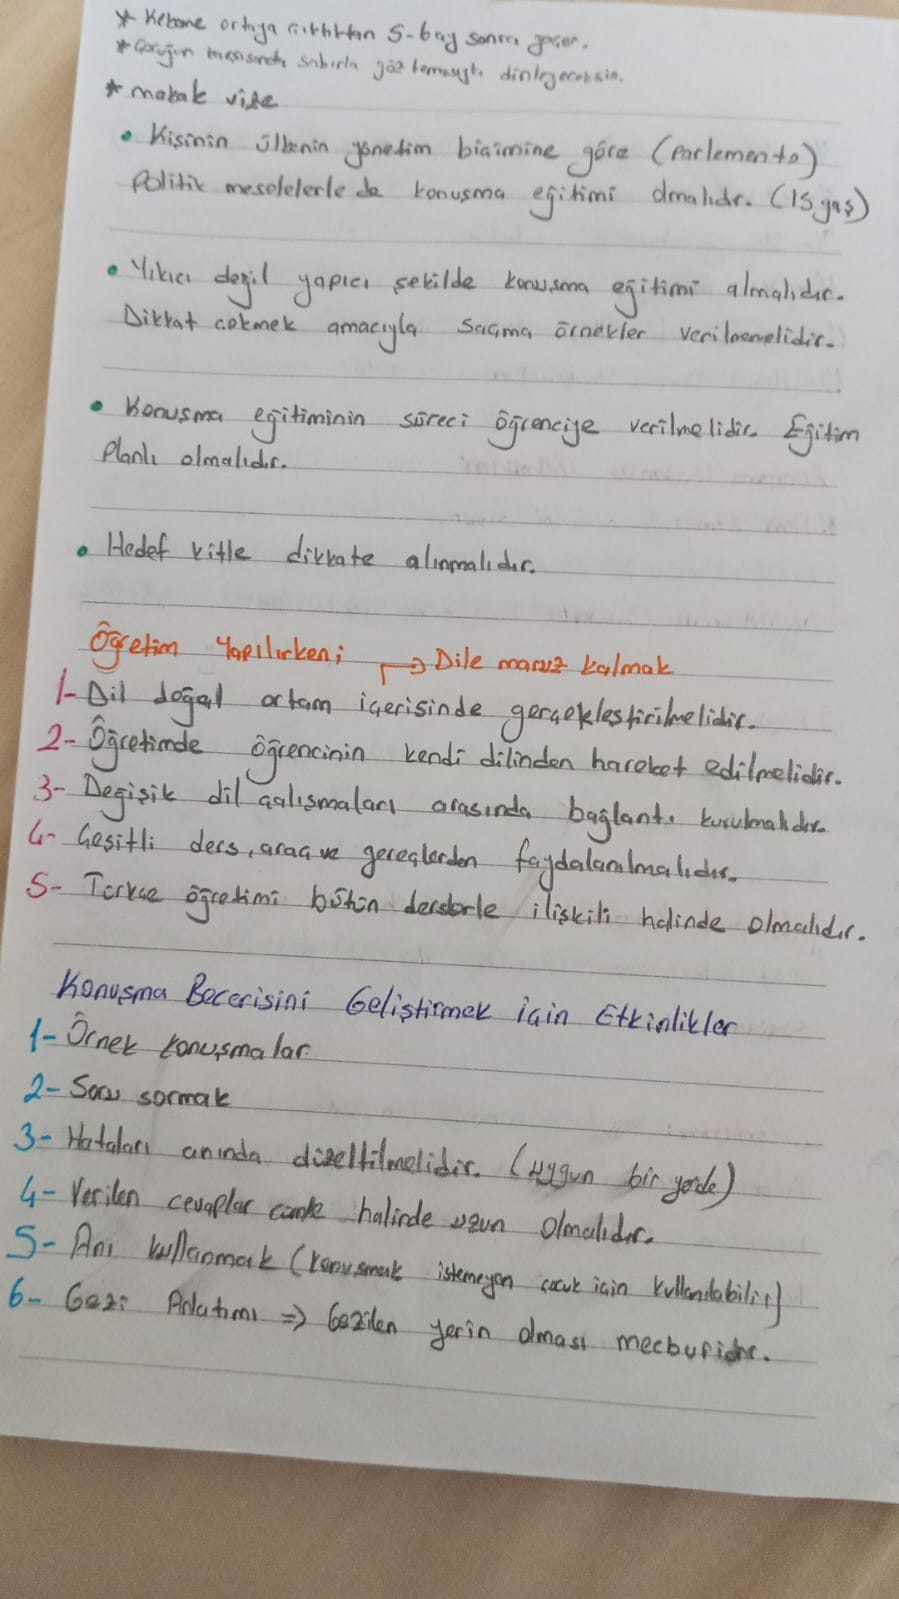 * Kekeme ortaya çıktıktan 5-6ay sonra geçer.
* Çocuğun masasında sabırla göz temasıyla dinleyeceksin.
* makak vite
• Kişinin ülkenin yönetim biçimine göre (Parlemento)
Politik meselelerle de konuşma eğitimi olmalıdır. (15 yaş)
• Yıkıcı değil yapıcı şekilde konuşma eğitimi almalıdır.
Dikkat çekmek amacıyla saçma örnekler verilmemelidir.
• Konuşma eğitiminin süreci öğrenciye verilmelidir. Eğitim
Planlı olmalıdır.
• Hedef kitle dikkate alınmalıdır.
Öğretim Yapılırken; → Dile maruz kalmak
1- Dil doğal ortam içerisinde gerçekleştirilmelidir.
2- Öğretimde öğrencinin kendi dilinden hareket edilmelidir.
3- Değişik dil çalışmaları arasında bağlantı kurulmalıdır.
4- Çeşitli ders, araç ve gereçlerden faydalanılmalıdır.
5- Türkçe öğretimi bütün derslerle ilişkili halinde olmalıdır.
Konuşma Becerisini Geliştirmek için Etkinlikler
1- Örnek konuşmalar
2- Soru sormak
3- Hataları anında düzeltilmelidir. (uygun bir yerde)
4- Verilen cevaplar cümle halinde uzun olmalıdır.
5- Anı kullanmak (Konuşmak istemeyen çocuk için kullanılabilir)
6- Gezi Anlatımı ⇒ Gezilen yerin olması mecburidir.